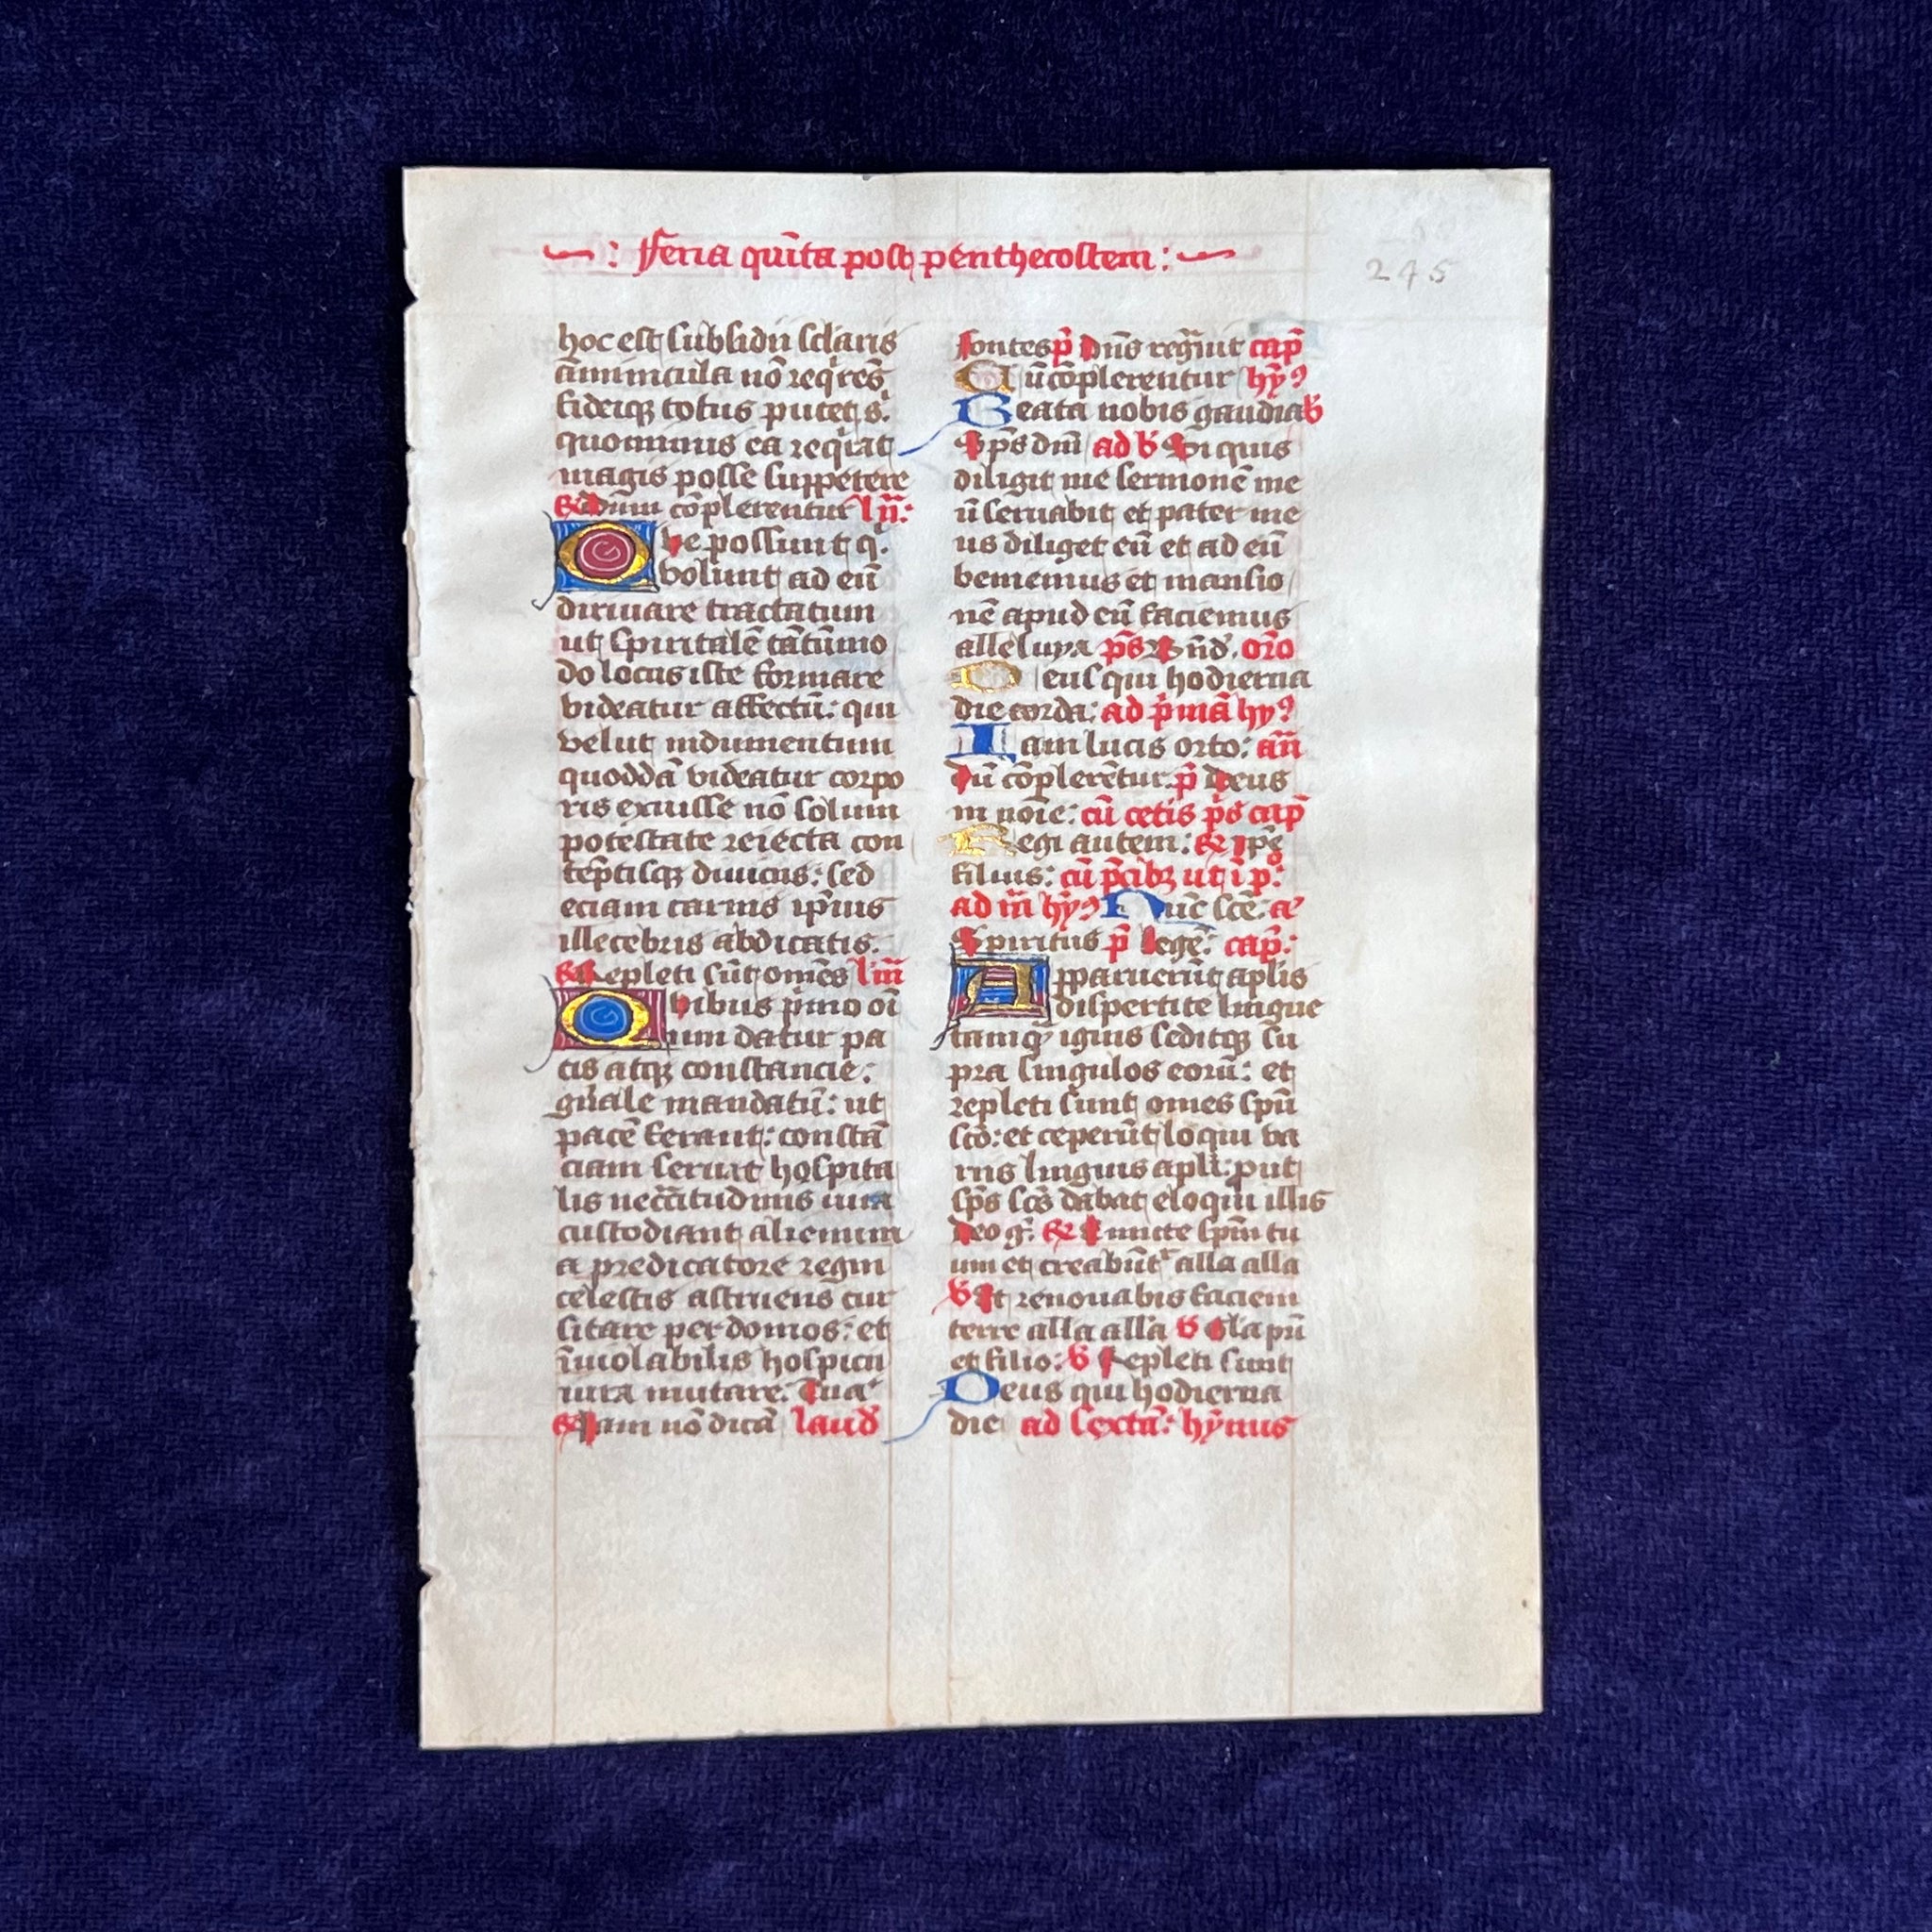 : fferia quīta post penthecostem :
245
hoc est subsidii sclaris
āminicula nō reqͥrēs
fideiqꝫ totus putet s.
quominus ea reqͥrat
magis posse suppetere
Dum cōplerentur
Qve possunt q.
volunt ad eū
diriuare tractatum
ut spiritalē tātūmo
do locus iste formare
videatur affectū: qui
velut indumentum
quoddā videatur corpo
ris exuisse nō solum
potestate reiecta con
tēptisqꝫ diuiciis: sed
eciam carnis ip̄ius
illecebris abdicatis.
Repleti sūt omēs
Qvibus p̄mo oī
um datur pa
cis atqꝫ constancie:
gn̄ale mandatū: ut
pacē ferant: constā
ciam seruēt hospita
lis necc̄itudinis iura
custodiant alienum
a predicatore regni
celestis astruens cur
sitare per domos: et
īuiolabilis hospicii
iura mutare. Tua
Iam nō dicā laud̄
fontes p̄ Dn̄s regn̄uit cap̄
Cū cōplerentur hȳ9
Beata nobis gaudia v̄
Sp̄s dm̄ ad b̄ Si quis
diligit me sermonē me
ū seruabit et pater me
us diliget eū et ad eū
veniemus et mansio
nē apud eū faciemus
alleluya p̄s Bn̄d. oro
Deus qui hodierna
die corda: ad p̄mā hy9
Iam lucis orto: an̄
Dū cōplerētur. p̄ Deus
in noīe: cū cetis p̄s cap̄
Regi autem: ip̄e
filius: cū p̄cibꝫ ut ī p̄:
ad iii hy9 Nūc sce. a
Spiritus p̄ Legē: cap̄:
Apparuerūt apl̄is
dispertite lingue
tamqͣ ignis seditqꝫ su
pra singulos eorū: et
repleti sunt omēs spū
scō: et ceperūt loqui va
riis linguis apl̄i: put
sp̄s scs dabat eloqui illis
Deo g. Emitte spm̄ tu
um et creabūtͬ alla alla
Et renouabis faciem
terre alla alla Gla pri
et filio: Repleti sunt
Deus qui hodierna
die ad sextā: hȳnus